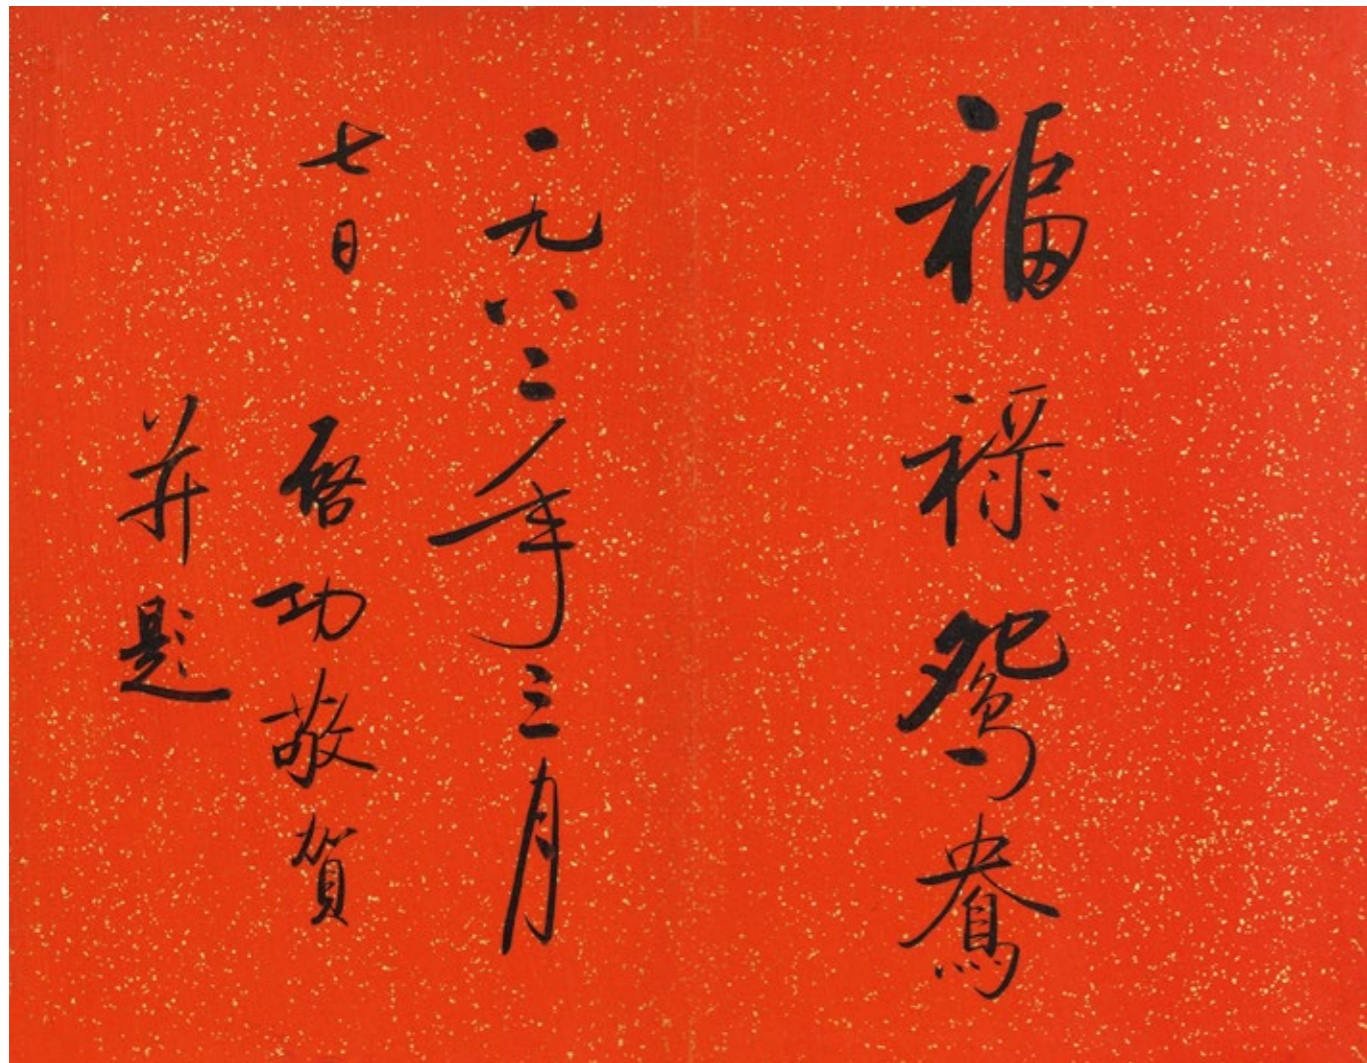 福禄鸳鸯
一九八二年三月
七日 启功敬賀
并题